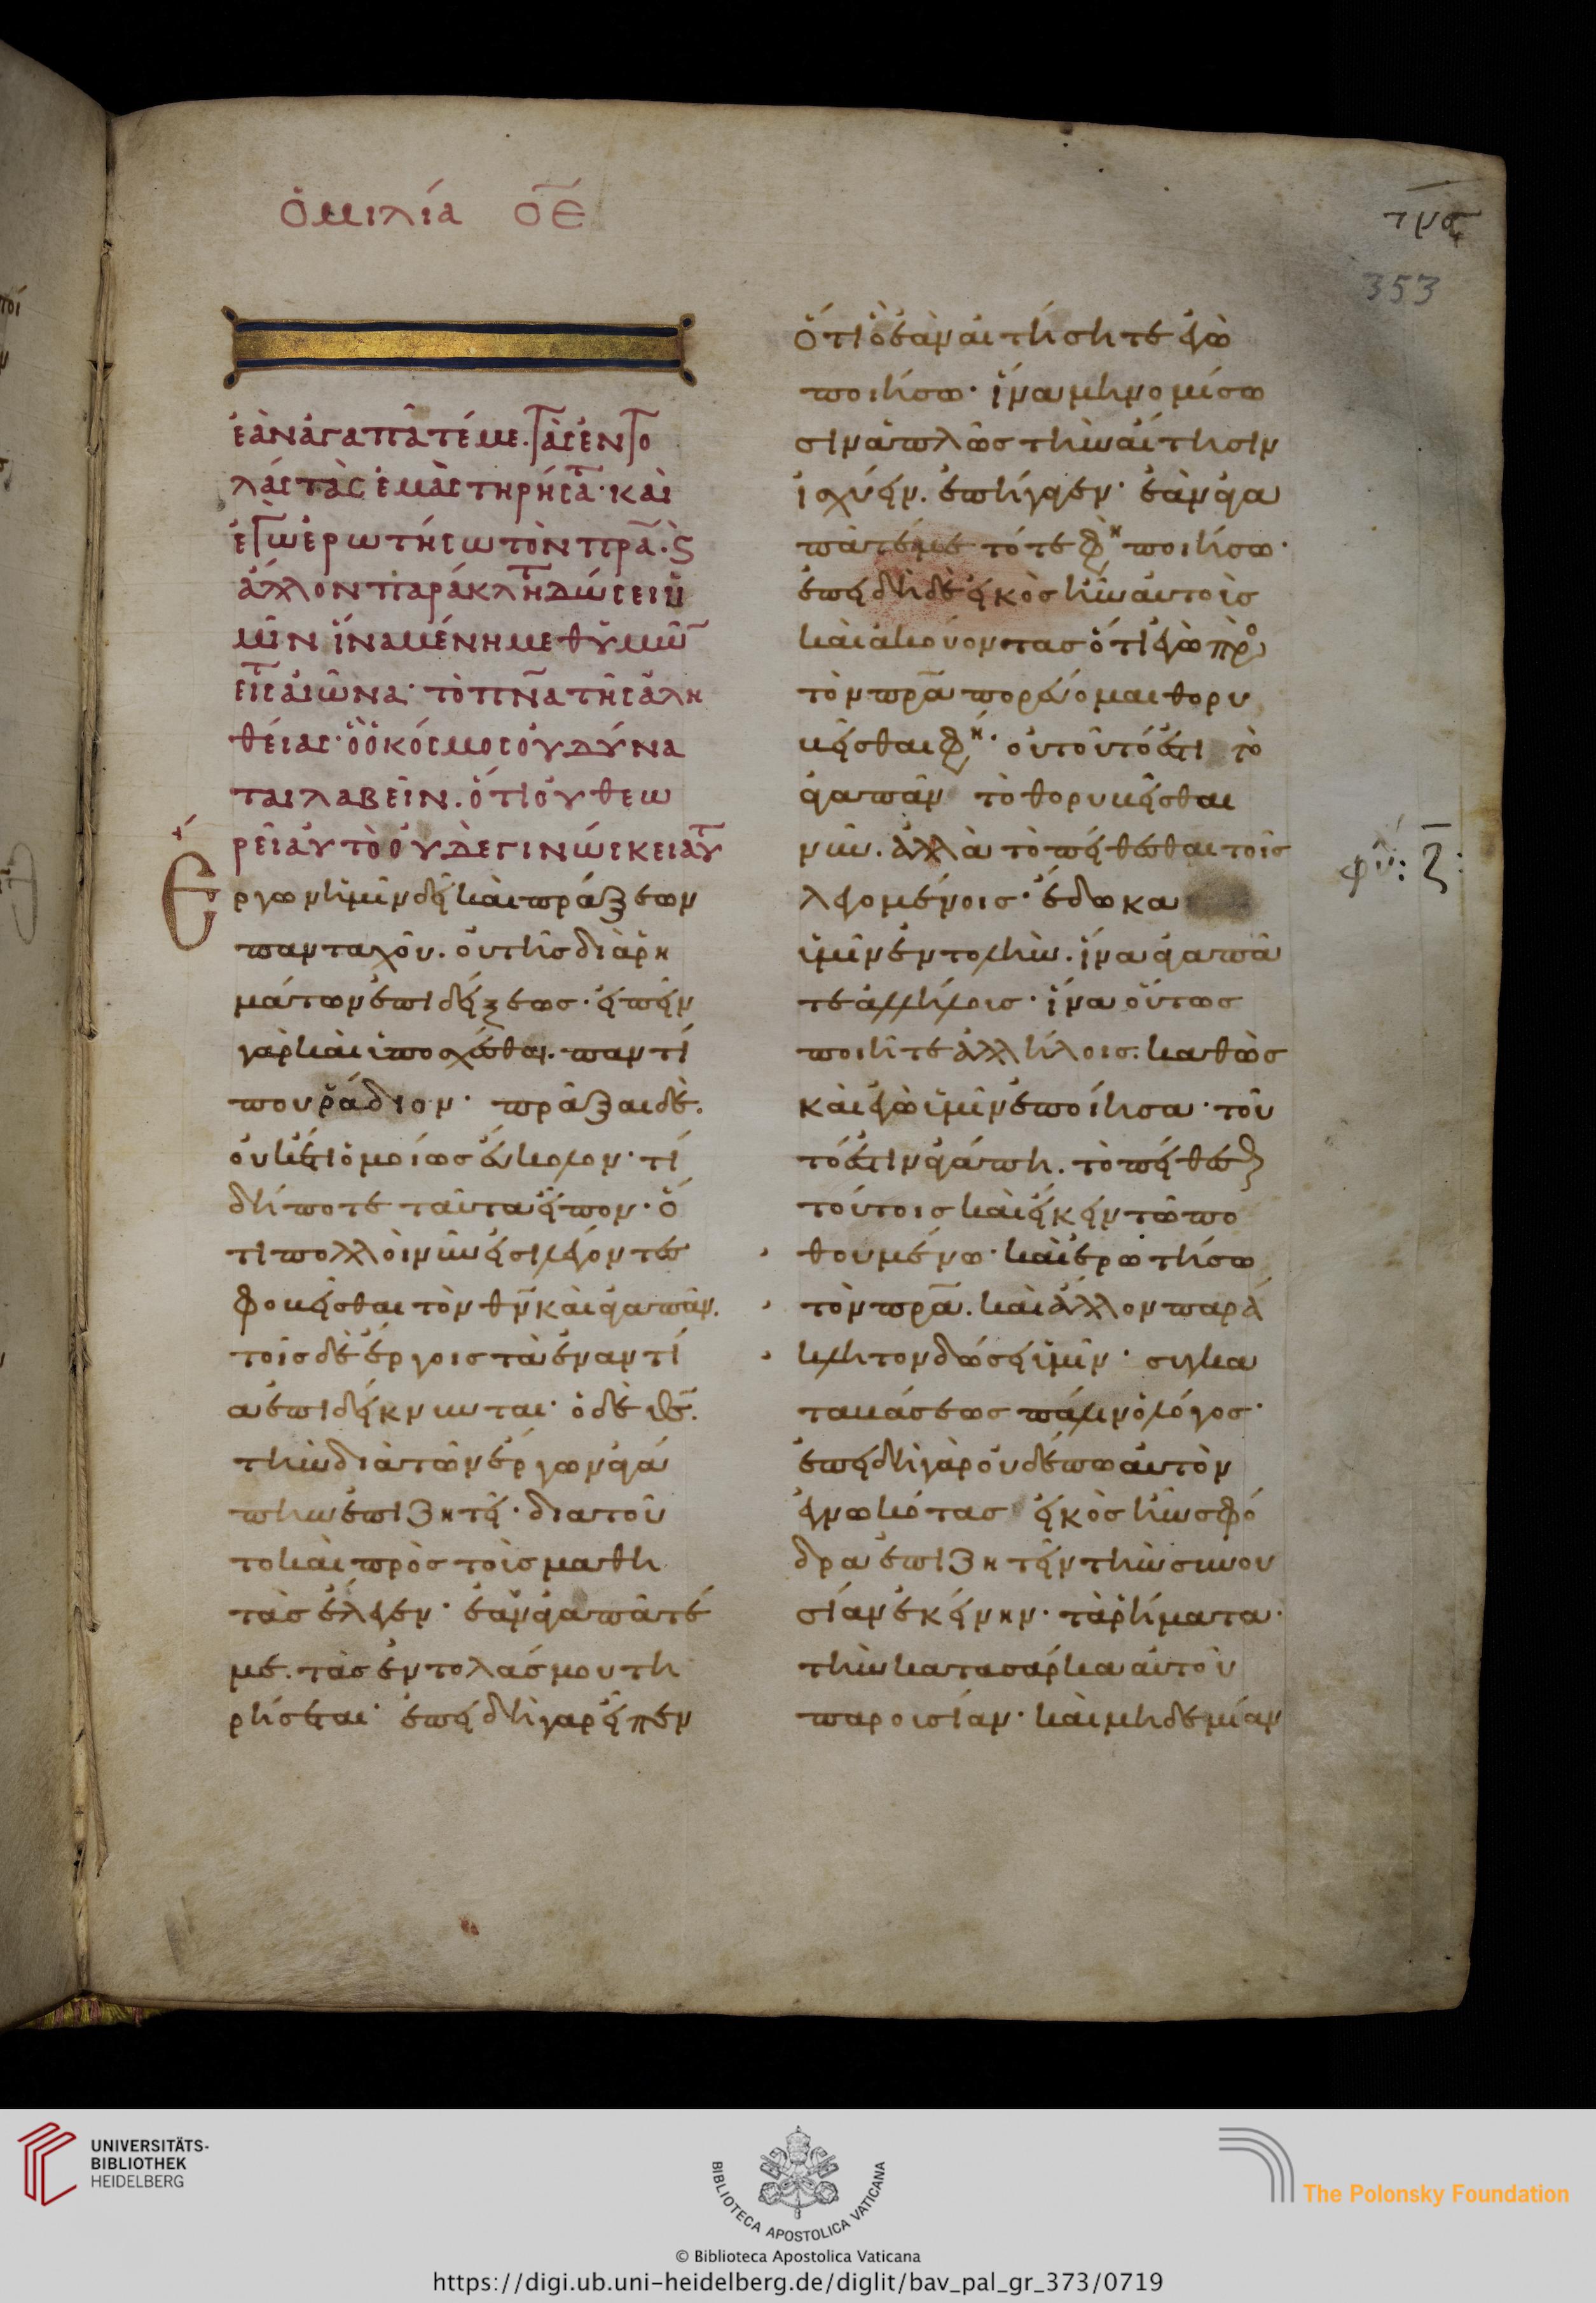 ὁμιλία οε
τμϛ
353
ἐὰν ἀγαπᾶτέ με. τὰς ἐντο
λὰς τὰς ἐμὰς τηρήσα̅· καὶ
ἐγὼ ἐρωτήσω τὸν πρ̅α̅· ϗ
ἄλλον παράκλητ̅ δώσει ὑ
μῖν ἵνα μένη μεθ ὑμῶ̅
εἰς τ̅ αἰῶνα· τὸ πν̅α τῆς ἀλη
θείας· ὃ ὁ κόσμος οὐ δύνα
ται λαβεῖν. ὅτι οὐ θεω
ρεῖ αὐτὸ οὐδὲ γινώσκει αυτ̅
Ἔργων ἡμῖν δεῖ καὶ πράξεων
πανταχοῦ. οὐ τῆς διὰ ῥη
μάτων ἐπιδείξεως· εἰπεῖν
γὰρ καὶ ὑποσχέσθαι. παντί
που ῥάδιον· πρᾶξαι δὲ.
οὐκέτι ὁμοίως εὔκολον· τί
δήποτε ταῦτα εἶπον· ὅ
τι πολλοὶ νῦν εἰσὶ λέγοντες
φοβεῖσθαι τὸν θν̅ καὶ ἀγαπᾶν.
τοῖς δὲ ἔργοις τὰ ἐναντί
α ἐπιδείκνυνται· ὁ δὲ θς̅.
τὴν διὰ τῶν ἔργων ἀγά
πην ἐπιζητεῖ· δια τοῦ
το καὶ πρὸς τοὶς μαθη
τὰς ἔλεγεν· ἐὰν ἀγαπᾶτέ
με. τὰς ἐντολάς μου τη
ρήσεται· ἐπειδὴ γαρ εἶπεν
ὅτι ὃ ἐὰν αἰτήσητε ἐγὼ
ποιήσω· ἵνα μὴ νομίσω
σιν ἁπλῶς τὴν αἴτησιν
ἰσχύειν. ἐπήγαγεν· ἐὰν ἀγα
πᾶτέ με τότε φη̅ ποιήσω·
ἐπειδὴ δὲ εἰκὸς ἦν αὐτοὶς
καὶ ἀκούοντας ὅτι ἐγὼ πρὸς
τὸν πρ̅α̅ πορεύομαι θορυ
βεῖσθαι φη̅· οὐ τοῦτό ἐστι τὸ
ἀγαπᾶν τὸ θορυβεῖσθαι
νῦν. ἀλλὰ τὸ πείθεσθαι τοῖς
λεγομένοις· ἔδωκα
ὑμῖν ἐντολὴν. ἵνα ἀγαπᾶ
τε ἀλλήλοις· ἵνα οὕτως
ποιῆτε ἀλλήλοις. καθὼς
καὶ ἐγὼ ὑμῖν ἐποίησα· τοῦ
τό ἐστιν ἀγάπη. τὸ πείθεσθαι
τούτοις καὶ εἴκειν τῶ πο
θουμένω· καὶ ἐρωτήσω
τὸν πρ̅α̅. καὶ ἄλλον παρά
κλητον δώσει ὑμῖν· συγκα
ταβάσεως πάλιν ὁ λόγος·
ἐπειδὴ γὰρ οὐδέπω αὐτὸν
ἐγνωκότας εἰκὸς ἦν σφό
δρα ἐπιζητεῖν τὴν συνου
σίαν ἐκείνην· τὰ ῥήματα·
τὴν κατα σάρκα αὐτοῦ
παροισίαν· καὶ μηδεμίαν
UNIVERSITÄTS-
BIBLIOTHEK
HEIDELBERG
BIBLIOTECA APOSTOLICA VATICANA
The Polonsky Foundation
© Biblioteca Apostolica Vaticana
https://digi.ub.uni-heidelberg.de/diglit/bav_pal_gr_373/0719